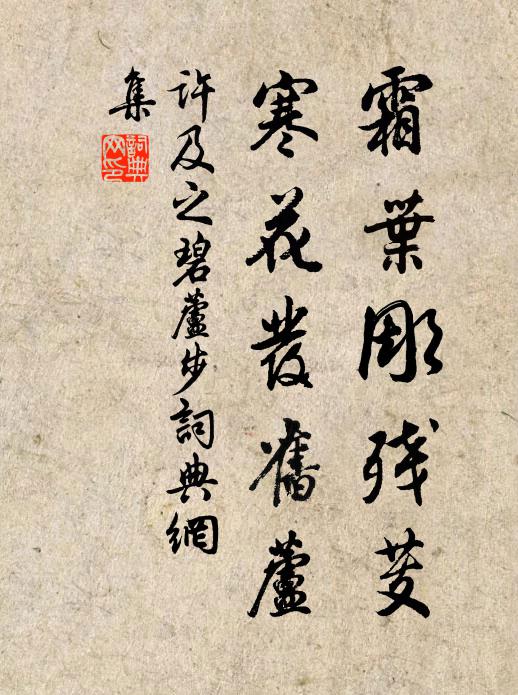 霜葉彫残芰
寒花發舊蘆
許及之碧蘆步詞典網
集
詞典
网印